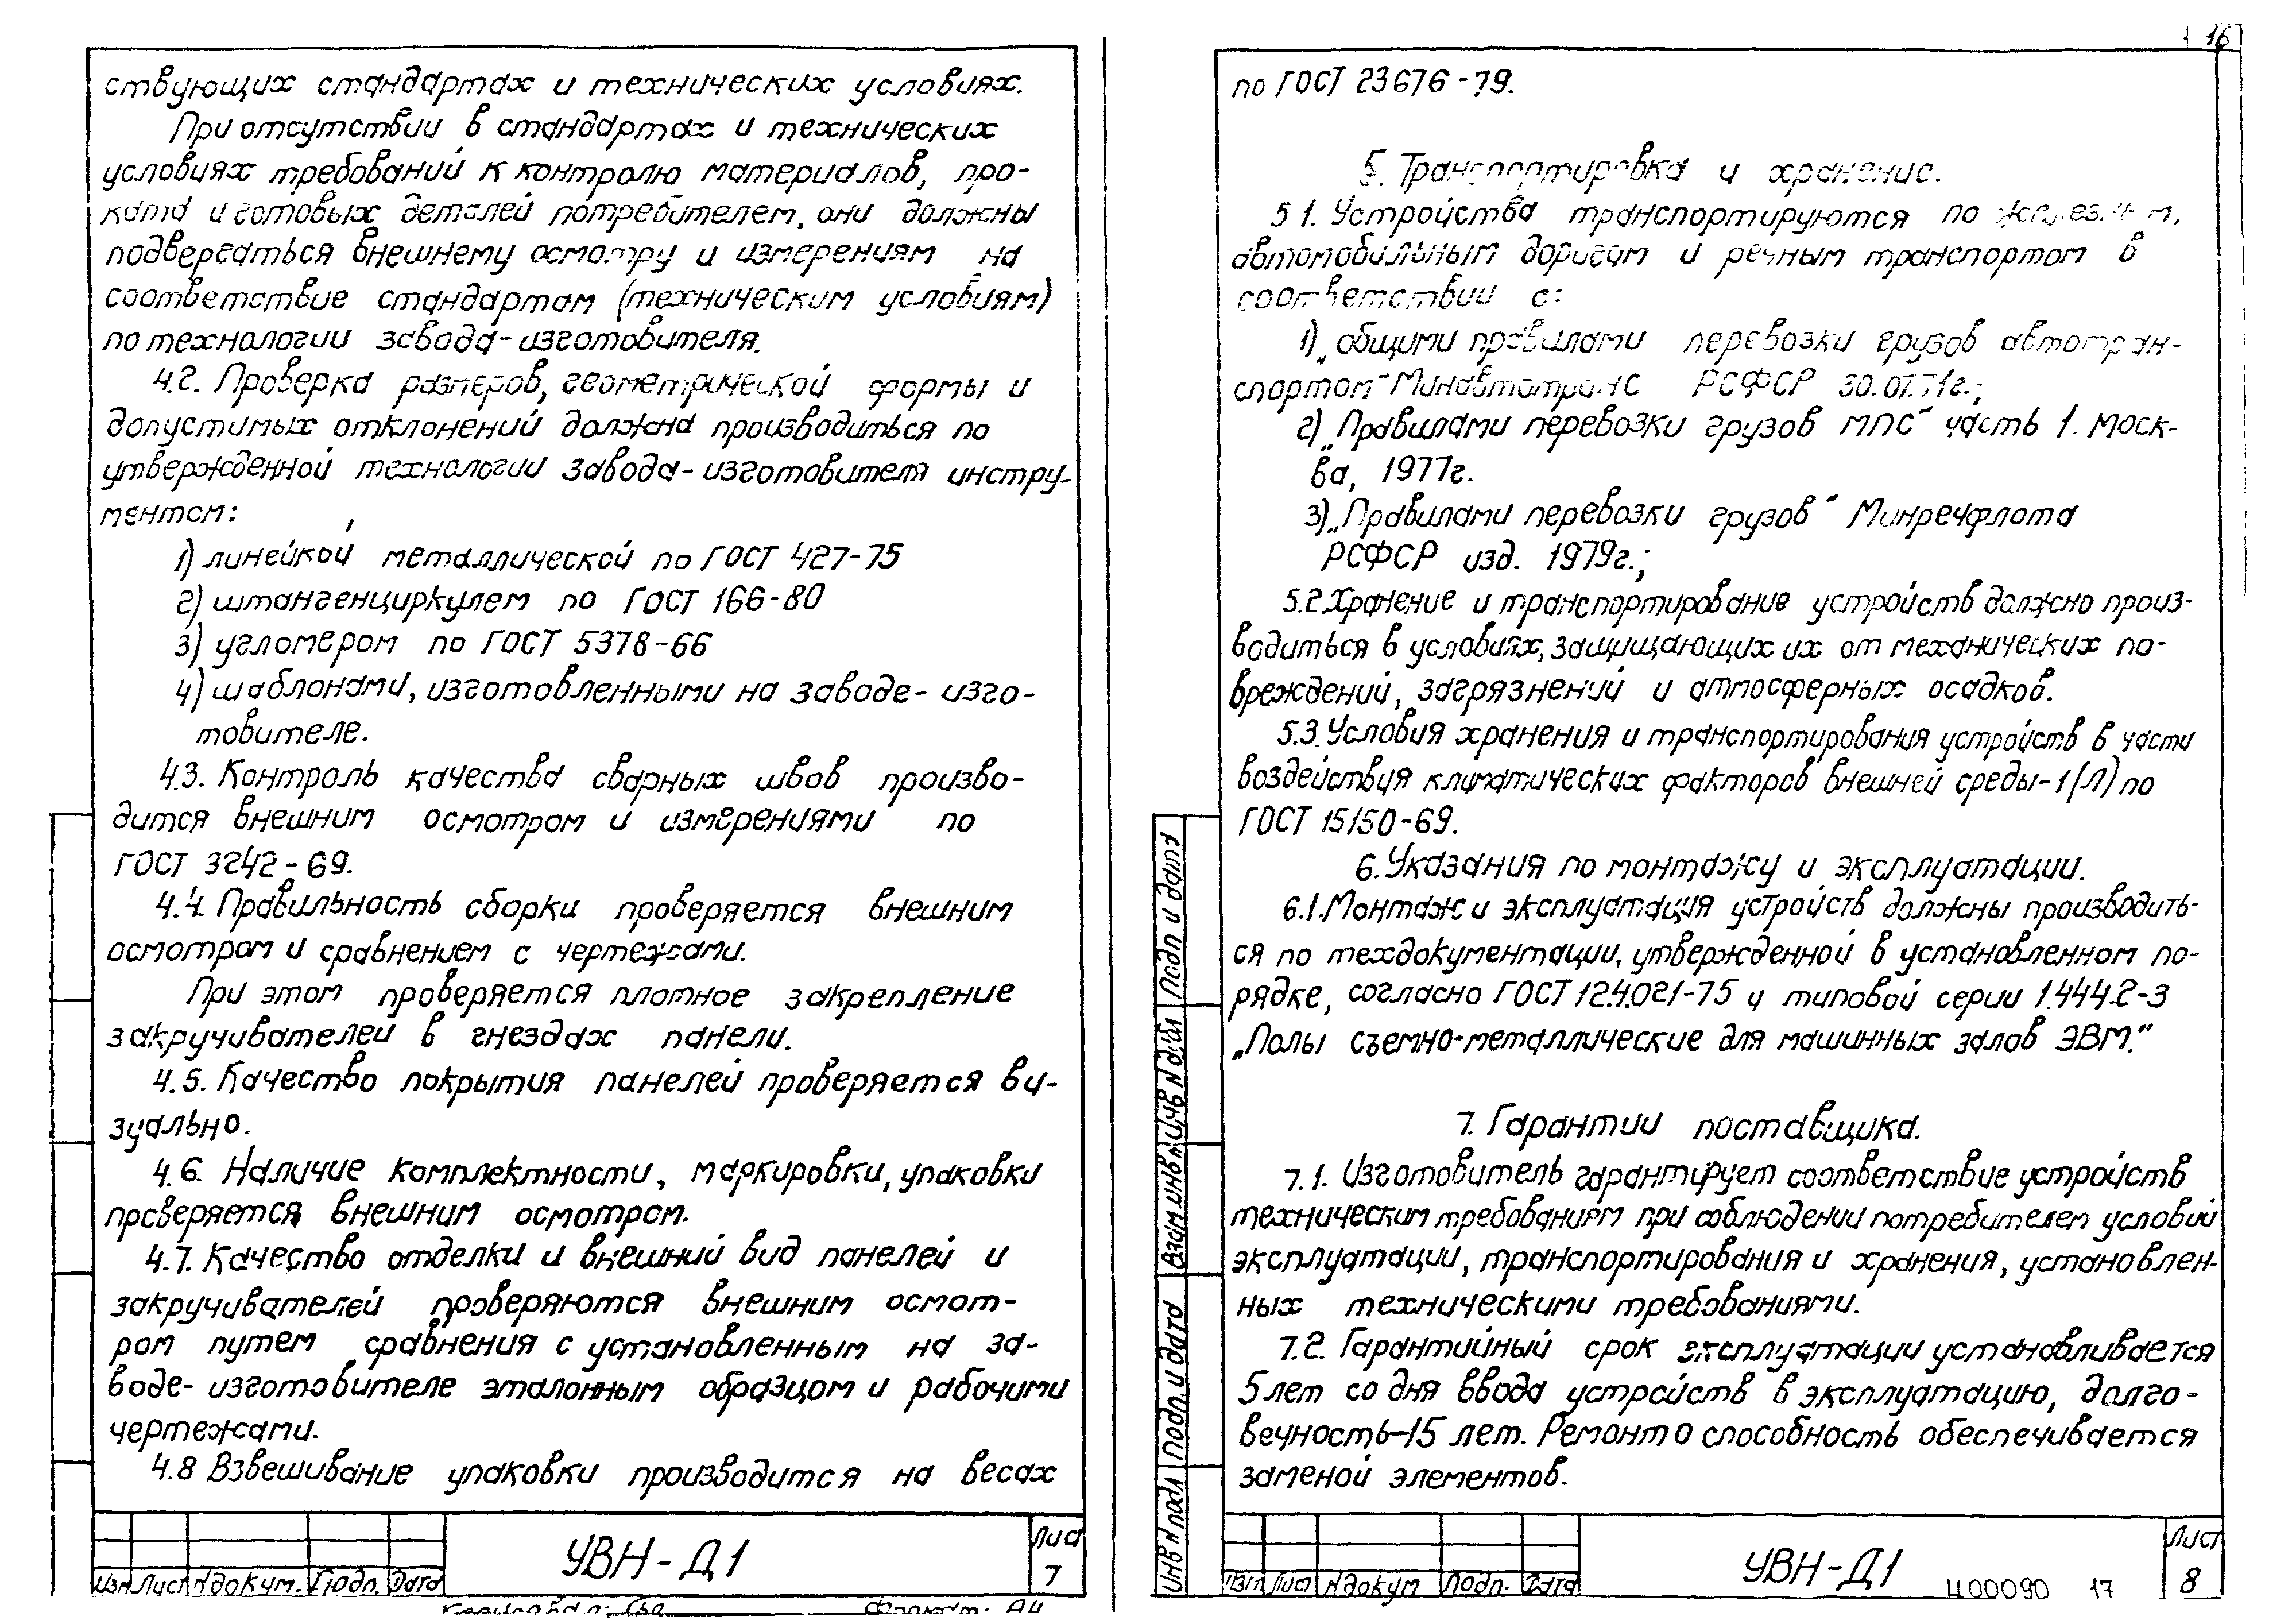 ствующих стандартах и технических условиях.
При отсутствии в стандартах и технических
условиях требований к контролю материалов, про-
ката и готовых деталей потребителем, они должны
подвергаться внешнему осмотру и измерениям на
соответствие стандартам (техническим условиям)
по технологии завода-изготовителя.
4.2. Проверка размеров, геометрической формы и
допустимых отклонений должна производиться по
утвержденной технологии завода-изготовителя инстру-
ментом:
1) линейкой металлической по ГОСТ 427-75
2) штангенциркулем по ГОСТ 166-80
3) угломером по ГОСТ 5378-66
4) шаблонами, изготовленными на заводе-изго-
товителе.
4.3. Контроль качества сварных швов произво-
дится внешним осмотром и измерениями по
ГОСТ 3242-69.
4.4. Правильность сборки проверяется внешним
осмотром и сравнением с чертежами.
При этом проверяется плотное закрепление
закручивателей в гнездах панели.
4.5. Качество покрытия панелей проверяется ви-
зуально.
4.6. Наличие комплектности, маркировки, упаковки
проверяется внешним осмотром.
4.7. Качество отделки и внешний вид панелей и
закручивателей проверяются внешним осмот-
ром путем сравнения с установленным на за-
воде-изготовителе эталонным образцом и рабочими
чертежами.
4.8 Взвешивание упаковки производится на весах
УВН-Д1
Лист
7
Изм Лист N докум. Подп. Дата
Формат: А4
16
по ГОСТ 23676-79.
5. Транспортировка и хранение.
5 1. Устройства транспортируются по железным,
автомобильным дорогам и речным транспортом в
соответствии с:
1) „общими правилами перевозки грузов автотран-
спортом" Минавтотранс РСФСР 30.07.71г.;
2) „Правилами перевозки грузов МПС" часть 1. Моск-
ва, 1977г.
3) „Правилами перевозки грузов" Минречфлота
РСФСР изд. 1979г.;
5.2. Хранение и транспортирование устройств должно произ-
водиться в условиях, защищающих их от механических по-
вреждений, загрязнений и атмосферных осадков.
5.3. Условия хранения и транспортирования устройств в части
воздействия климатических факторов внешней среды-1(Л) по
ГОСТ 15150-69.
6. Указания по монтажу и эксплуатации.
6.1. Монтаж и эксплуатация устройств должны производить-
ся по техдокументации, утвержденной в установленном по-
рядке, согласно ГОСТ 12.4.021-75 и типовой серии 1.444.2-3
„Полы съемно-металлические для машинных залов ЭВМ."
7. Гарантии поставщика.
7.1. Изготовитель гарантирует соответствие устройств
техническим требованиям при соблюдении потребителем условий
эксплуатации, транспортирования и хранения, установлен-
ных техническими требованиями.
7.2. Гарантийный срок эксплуатации устанавливается
5 лет со дня ввода устройств в эксплуатацию, долго-
вечность-15 лет. Ремонтоспособность обеспечивается
заменой элементов.
Подп и дата
Инв N дубл
Взам инв N
Подп. и дата
Инв N подл
УВН-Д1
Лист
8
Изм Лист N докум Подп. Дата
Ц00090 17